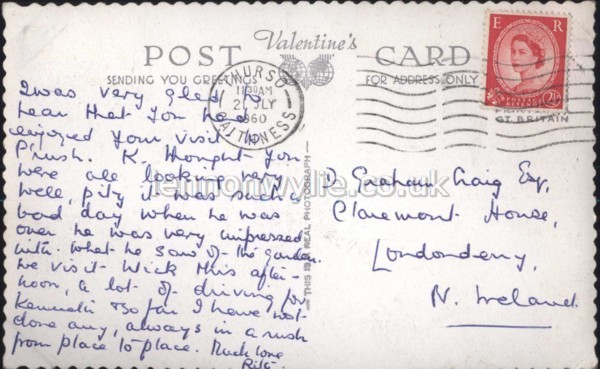 POST Valentine's CARD
SENDING YOU GREETINGS FOR ADDRESS ONLY
THURSO
11 30AM
21 JLY
1960
CAITHNESS
E R
2½
GT. BRITAIN
I was very glad to
hear that you had
enjoyed your visit to
Prush. K. thought you
were all looking very
well, pity it was such a
bad day when he was
over he was very impressed
with what he saw of the garden.
We visit Wick this after-
noon, a lot of driving for
Kenneth so far I have not
done any, always in a rush
from place to place. Much love
THIS IS A REAL PHOTOGRAPH
D. Graham Craig Esq,
Claremont House,
Londonderry,
N. Ireland.
lennonwylie.co.uk